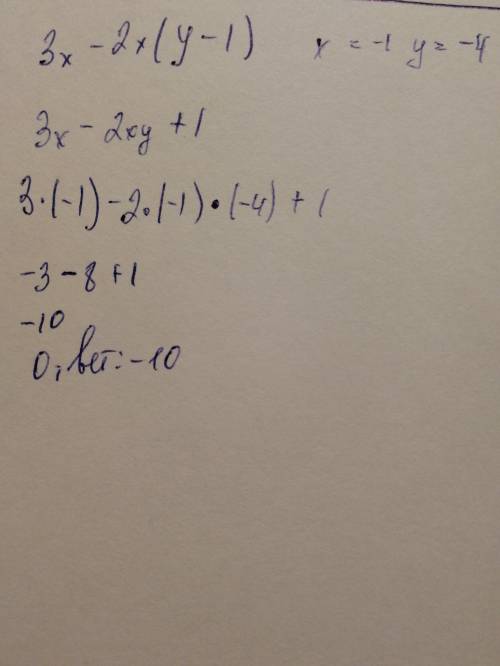 3x - 2x(y - 1) x = -1 y = -4
3x - 2xy + 1
3·(-1) - 2·(-1)·(-4) + 1
-3 - 8 + 1
-10
Ответ: -10